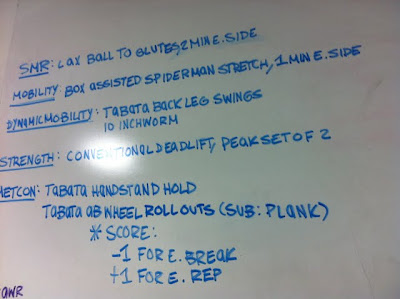 SMR: LAX BALL TO GLUTES, 2 MIN E. SIDE
MOBILITY: BOX ASSISTED SPIDERMAN STRETCH, 1 MIN E. SIDE
DYNAMIC MOBILITY: TABATA BACK LEG SWINGS
10 INCHWORM
STRENGTH: CONVENTIONAL DEADLIFT, PEAK SET OF 2
METCON: TABATA HANDSTAND HOLD
TABATA AB WHEEL ROLLOUTS (SUB: PLANK)
* SCORE:
-1 FOR E. BREAK
+1 FOR E. REP
AWR